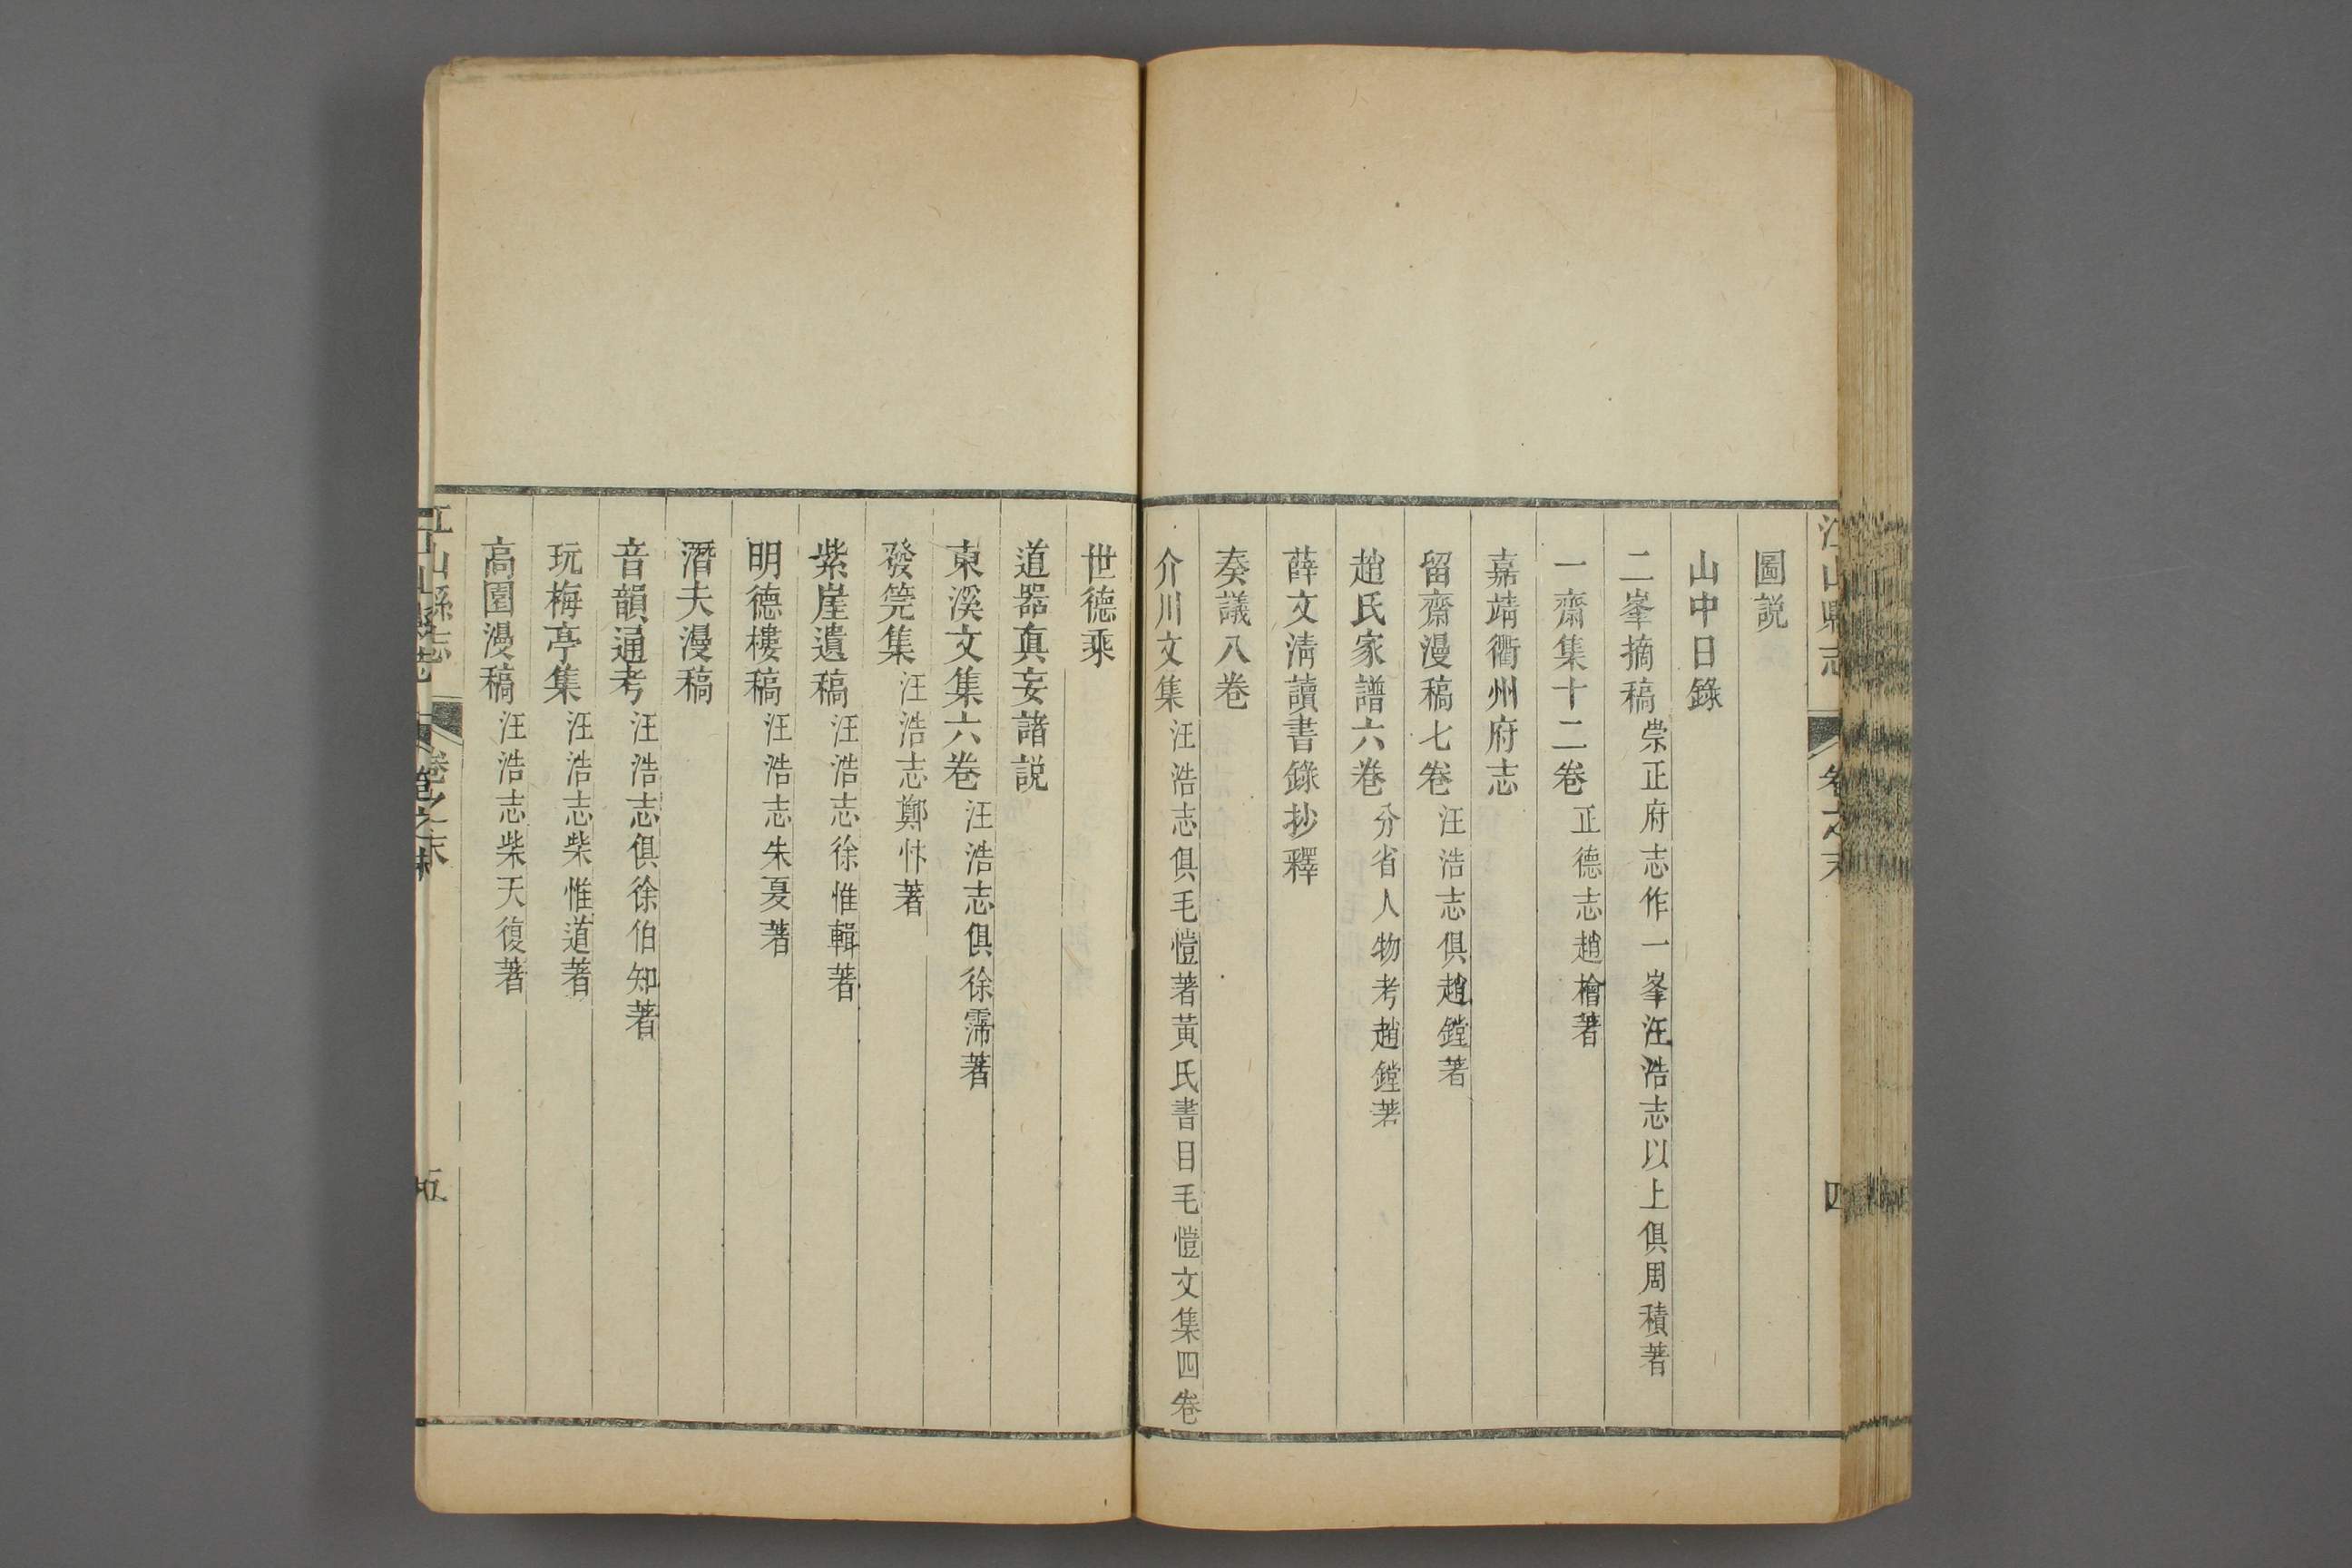 江山縣志 卷之末 四
圖説
山中日錄
二峯摘稿 崇正府志作一峯汪浩志以上俱周積著
一齋集十二卷 正德志趙檜著
嘉靖衢州府志
留齋漫稿七卷 汪浩志俱趙鏜著
趙氏家譜六卷 分省人物考趙鏜著
薛文淸讀書錄抄釋
奏議八卷
介川文集 汪浩志俱毛愷著黃氏書目毛愷文集四卷
世德乘
道器眞妄諸説
東溪文集六卷 汪浩志俱徐霈著
發筦集 汪浩志鄭忭著
紫崖遺稿 汪浩志徐惟輯著
明德樓稿 汪浩志朱夏著
潛夫漫稿
音韻通考 汪浩志俱徐伯知著
玩梅亭集 汪浩志柴惟道著
高園漫稿 汪浩志柴天復著
江山縣志 卷之末 五